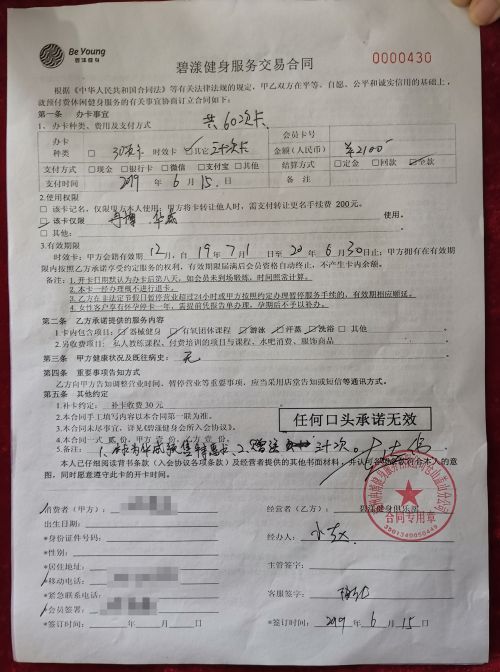 Be Young
碧漾健身
碧漾健身服务交易合同
0000430
根据《中华人民共和国合同法》等有关法律法规的规定，甲乙双方在平等、自愿、公平和诚实信用的基础上，
就预付费休闲健身服务的有关事宜协商订立合同如下：
第一条 办卡事宜
1、办卡种类、费用及支付方式
共60次卡
会员卡号
办卡种类
□ 30次卡 时效卡 ☑其它 计次卡
金额（人民币） ¥2100
支付方式 □现金 □银行卡 □微信 □支付宝 □其他
结算方式 □定金 □回款 ☑全款
支付时间 2019 年 6 月 15 日
备 注
2.使用权限
□ 该卡记名，仅限甲方本人使用；甲方将卡转让他人时，需支付转让更名手续费 200元。
☑该卡仅限 使用。
□ 其他：
3.有效期限
时效卡：甲方会籍有效期 12月，自 19年 7月 1 日至 20 年 6 月 30日止；甲方拥有在有效期
限内按照乙方承诺享受约定服务的权利，有效期限届满后会员资格自动终止，不产生卡内余额。
备注：1.开卡日期默认为办卡后第八天，如会员未到场锻炼，时间照常计算。
2.本卡一经办理概不进行退卡。
3.乙方在非法定节假日暂停营业超过24小时或甲方按照约定办理暂停服务手续的，有效期相应顺延。
4.女性客户享有怀孕停卡一年，需提前凭报告单办理，孕期后不予以补办。
第二条 乙方承诺提供的服务内容
1.卡内包含项目：☑器械健身 ☑有氧团体课程 ☑游泳 ☑汗蒸 ☑洗浴 □ 其他
2.另收费项目：私人教练课程、付费培训的项目与课程、水吧消费、服饰商品
第三条 甲方健康状况及既往病史： 无
第四条 重要事项告知方式
乙方向甲方告知调整营业时间、暂停营业等重要事项，应当采用店堂告知或短信等通讯方式。
第五条 其他约定
1.补卡约定： 补卡收费30元
2.本合同手工填写内容以本合同第一联为准。
3.本合同未尽事宜，详见《碧漾健身会所入会协议》。
4.本合同一式 贰份，甲方 壹份，乙方 壹份。
任何口头承诺无效
5.备注： 1、
2、赠送 计次。
本人已仔细阅读背书条款（入会协议各项条款）及经营者提供的其他书面材料，并认可各条款符合本人的意
图，同时愿意遵守此卡的开卡时间。
消费者（甲方）：
经营者（乙方）： 碧漾健身俱乐部
出生日期：
*身份证件号码：
经办人：
*性别：
*居住地址：
主管签字：
移动电话：
*紧急联系电话：
客服签字：
会员签署：
*签订时间： 年 月 日
*签订时间： 2019 年 6 月 15 日
合同专用章